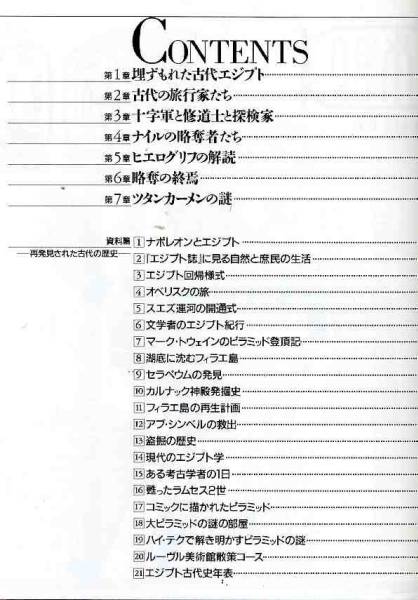 CONTENTS
第1章 埋ずもれた古代エジプト
第2章 古代の旅行家たち
第3章 十字軍と修道士と探検家
第4章 ナイルの略奪者たち
第5章 ヒエログリフの解読
第6章 略奪の終焉
第7章 ツタンカーメンの謎
資料篇
—再発見された古代の歴史—
1 ナポレオンとエジプト
2 『エジプト誌』に見る自然と庶民の生活
3 エジプト回帰様式
4 オベリスクの旅
5 スエズ運河の開通式
6 文学者のエジプト紀行
7 マーク・トウェインのピラミッド登頂記
8 湖底に沈むフィラエ島
9 セラペウムの発見
10 カルナック神殿発掘史
11 フィラエ島の再生計画
12 アブ・シンベルの救出
13 盗掘の歴史
14 現代のエジプト学
15 ある考古学者の1日
16 甦ったラムセス2世
17 コミックに描かれたピラミッド
18 大ピラミッドの謎の部屋
19 ハイ・テクで解き明かすピラミッドの謎
20 ルーヴル美術館散策コース
21 エジプト古代史年表